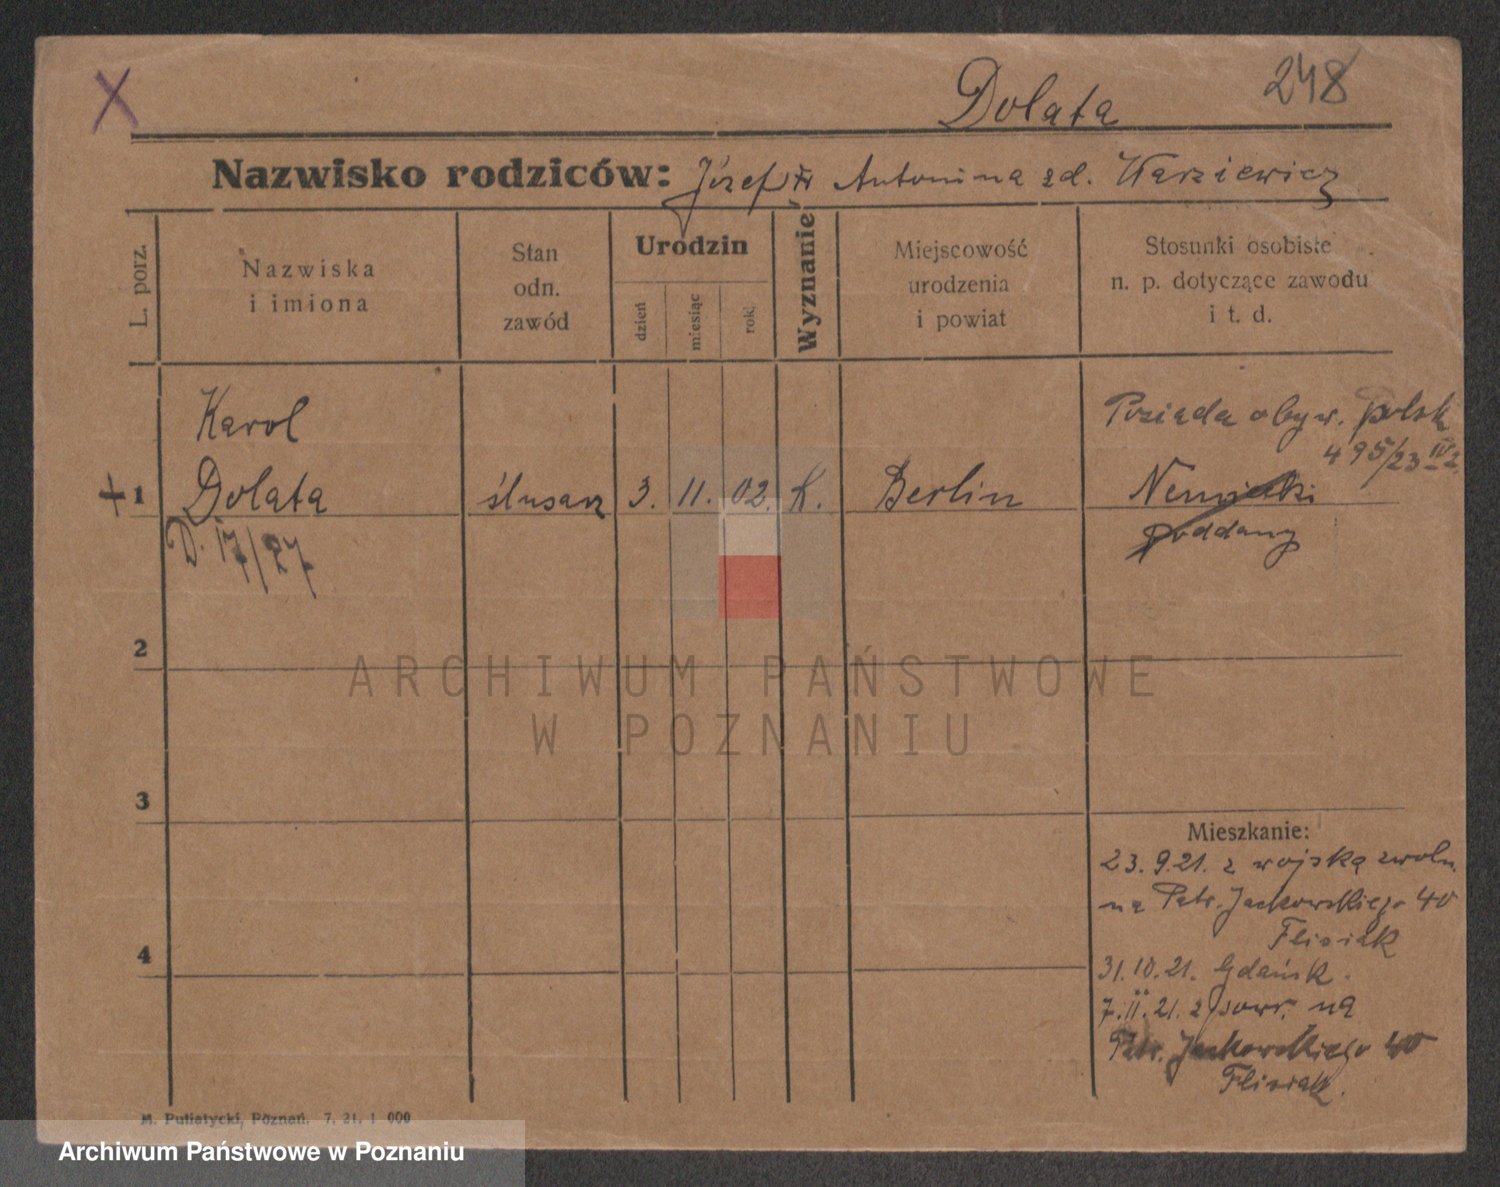 X
Dolata
248
Nazwisko rodziców: Józef i Antonina zd. Warziewicz
L. porz.
Nazwiska
i imiona
Stan
odn.
zawód
Urodzin
dzień
miesiąc
rok
Wyznanie
Miejscowość
urodzenia
i powiat
Stosunki osobiste
n. p. dotyczące zawodu
i t. d.
Karol
Posiada obyw. polsk
495/23
+ 1 Dolata ślusarz 3. 11. 02. K. Berlin Niemiecki
poddany
D. 17/27
2
ARCHIWUM PAŃSTWOWE
W POZNANIU
3
Mieszkanie:
23.9.21. z wojska zwoln.
na Patr. Jackowskiego 40
Flisiak
4
31.10.21. Gdańsk.
7.11.21. z powr. na
Patr. Jackowskiego 40
Flisiak.
M. Putiatycki, Poznań. 7. 21. 1 000
Archiwum Państwowe w Poznaniu